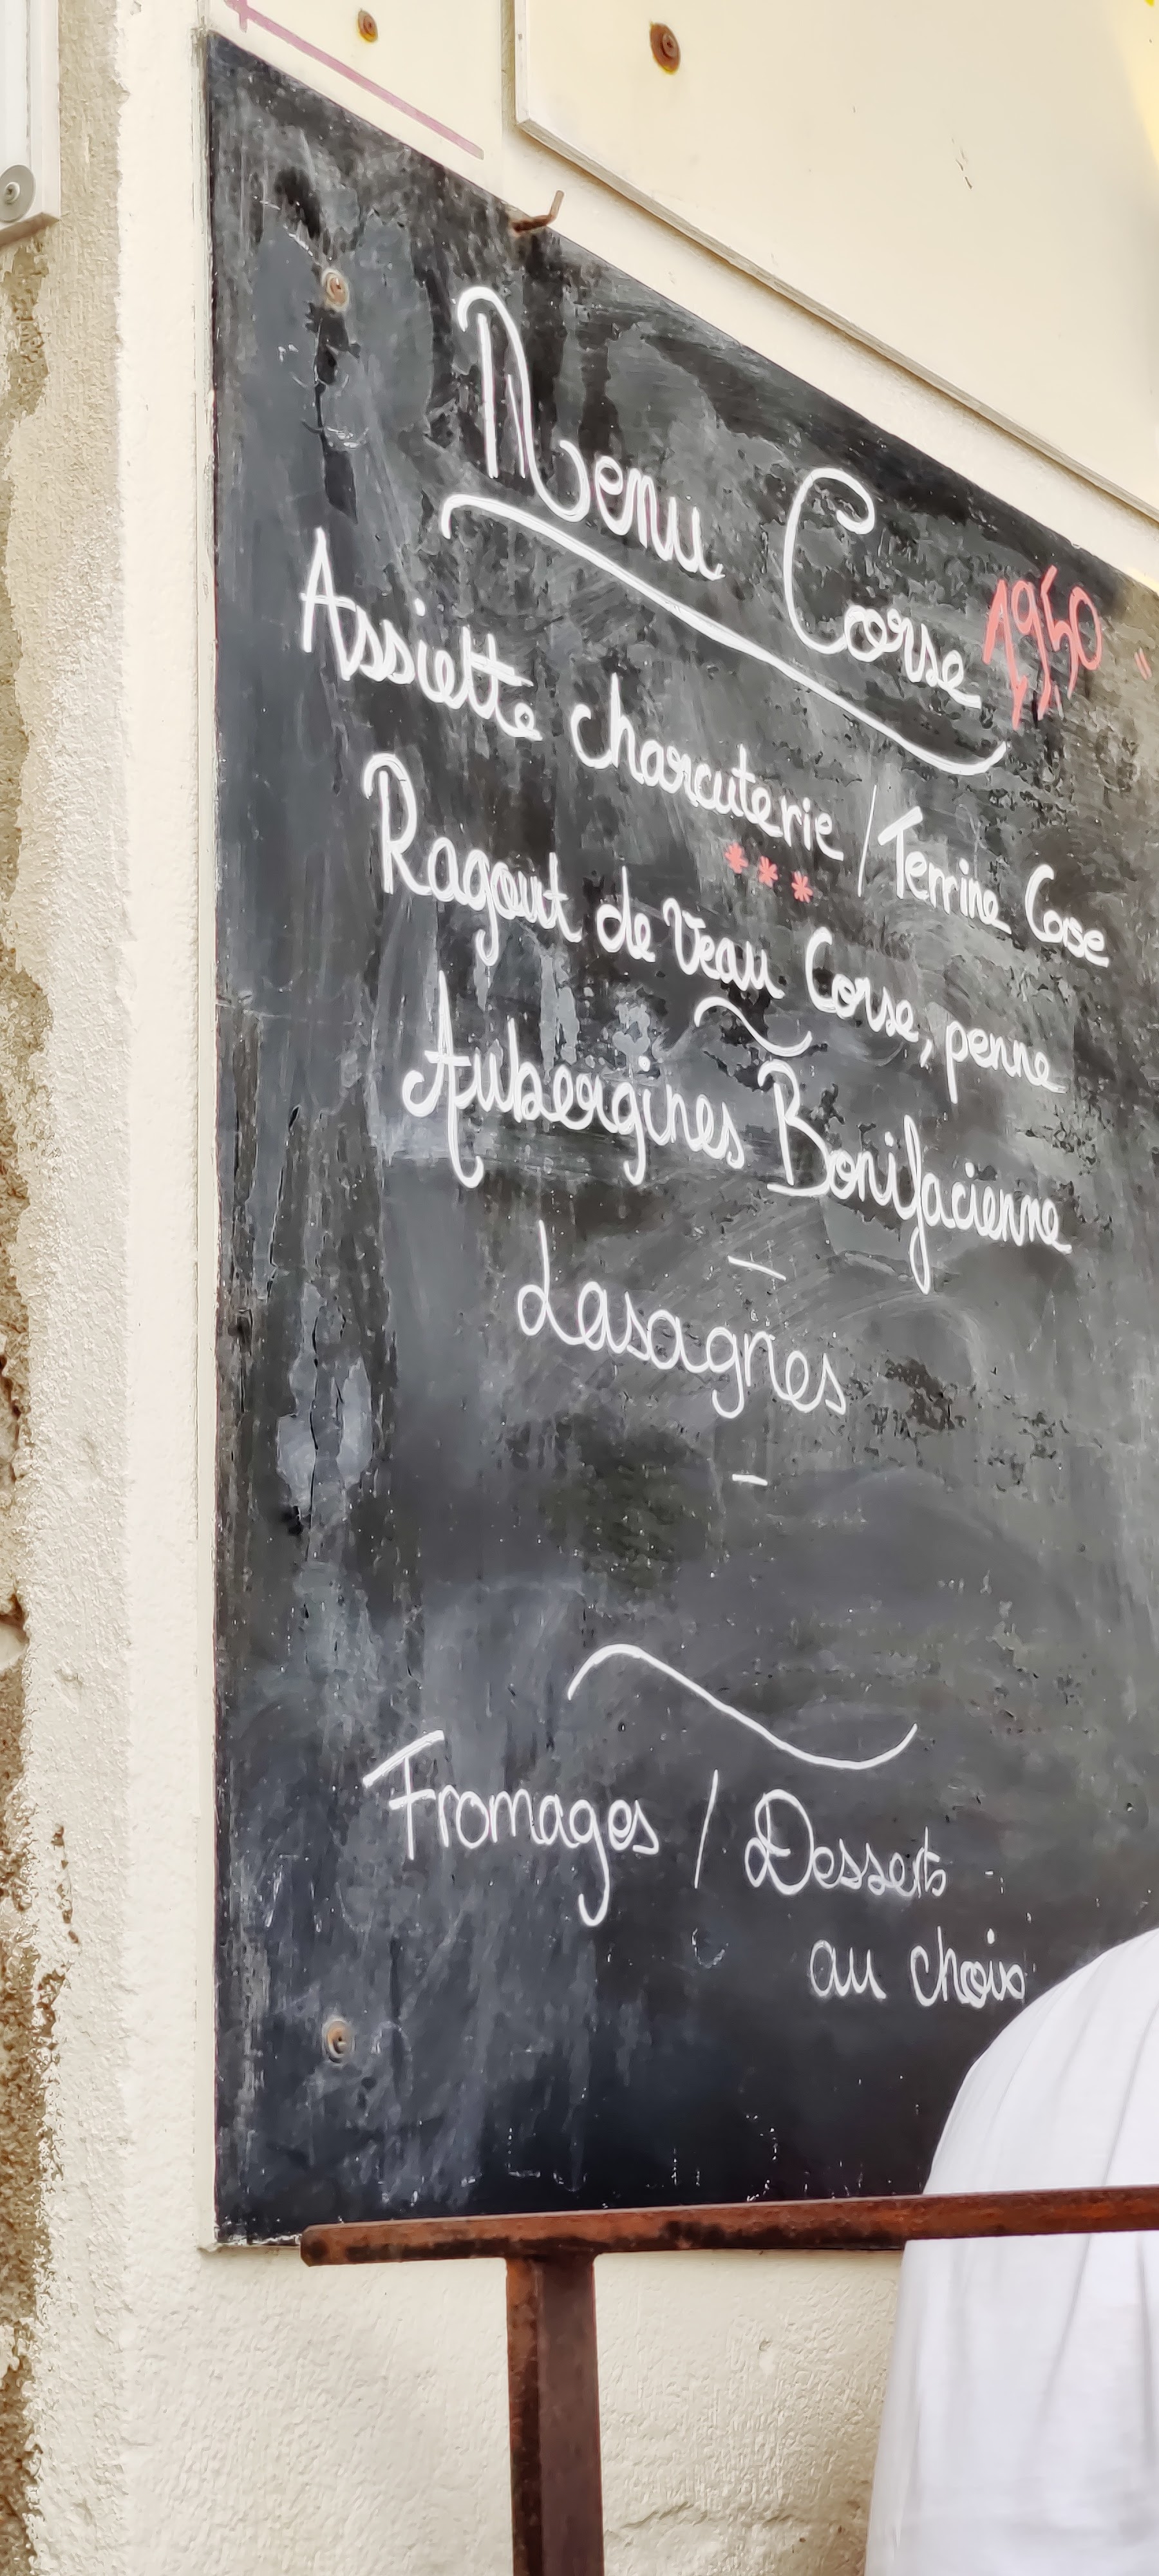 Menu Corse 19,50
Assiette charcuterie / Terrine Corse
***
Ragout de Veau Corse, penne
~
Aubergines Bonifacienne
—
Lasagnes
–
Fromages / Desserts
au choix